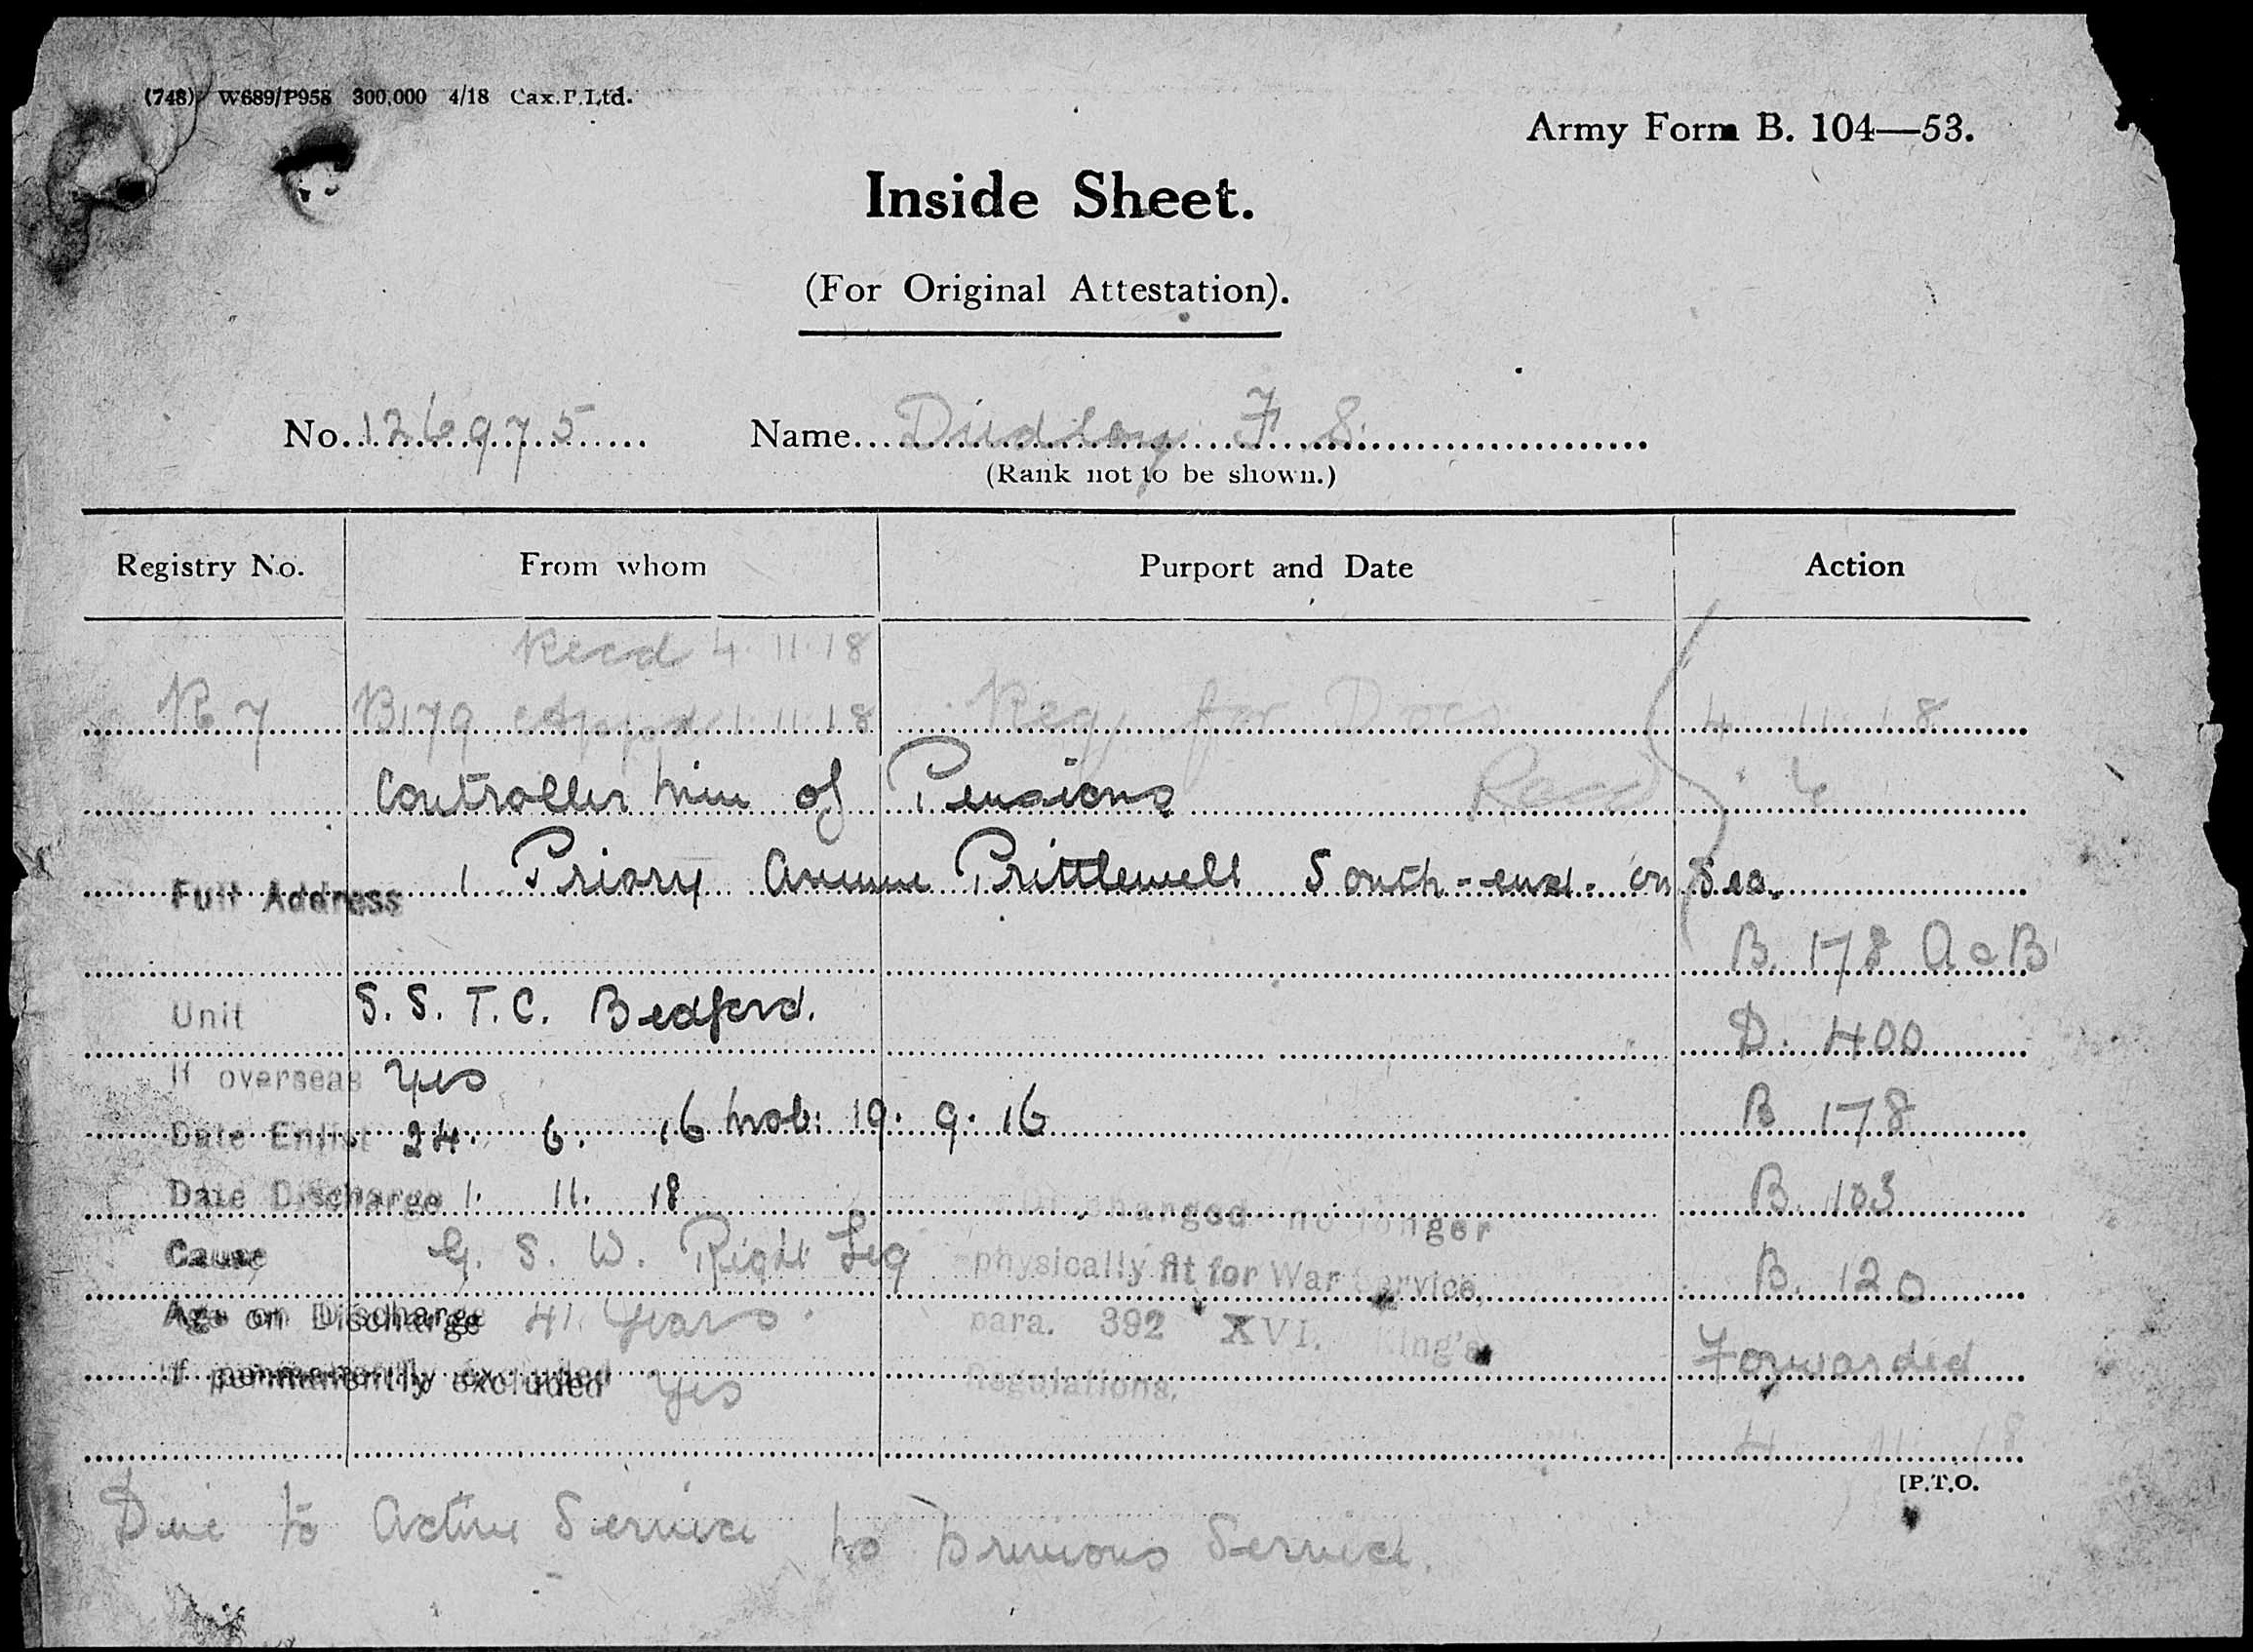 (748) W689/P958 300,000 4/18 Cax.P.Ltd.
Army Form B. 104—53.
Inside Sheet.
(For Original Attestation).
No. 126975 Name Dudley F S.
(Rank not to be shown.)
Registry No. From whom Purport and Date Action
Recd 4.11.18
R 7 B179 Appd 1.11.18 Req for Docs 4 11 18
Controller Min of Pensions Recd 6
Full Address 1 Priory Avenue Prittlewell South-end-on Sea.
B. 178 A & B
Unit S. S. T. C. Bedford. D. 400
If overseas Yes
Date Enlist 24. 6. 16 Mob: 19. 9. 16 B 178
Date Discharge 1. 11. 18 B. 103
Discharged no longer
Cause G. S. W. Right Leg physically fit for War Service, B. 120
Age on Discharge 41 Years. para. 392 XVI. King's Forwarded
If permanently excluded Yes Regulations.
4 11 18
[P.T.O.
Due to Active Service No Previous Service.